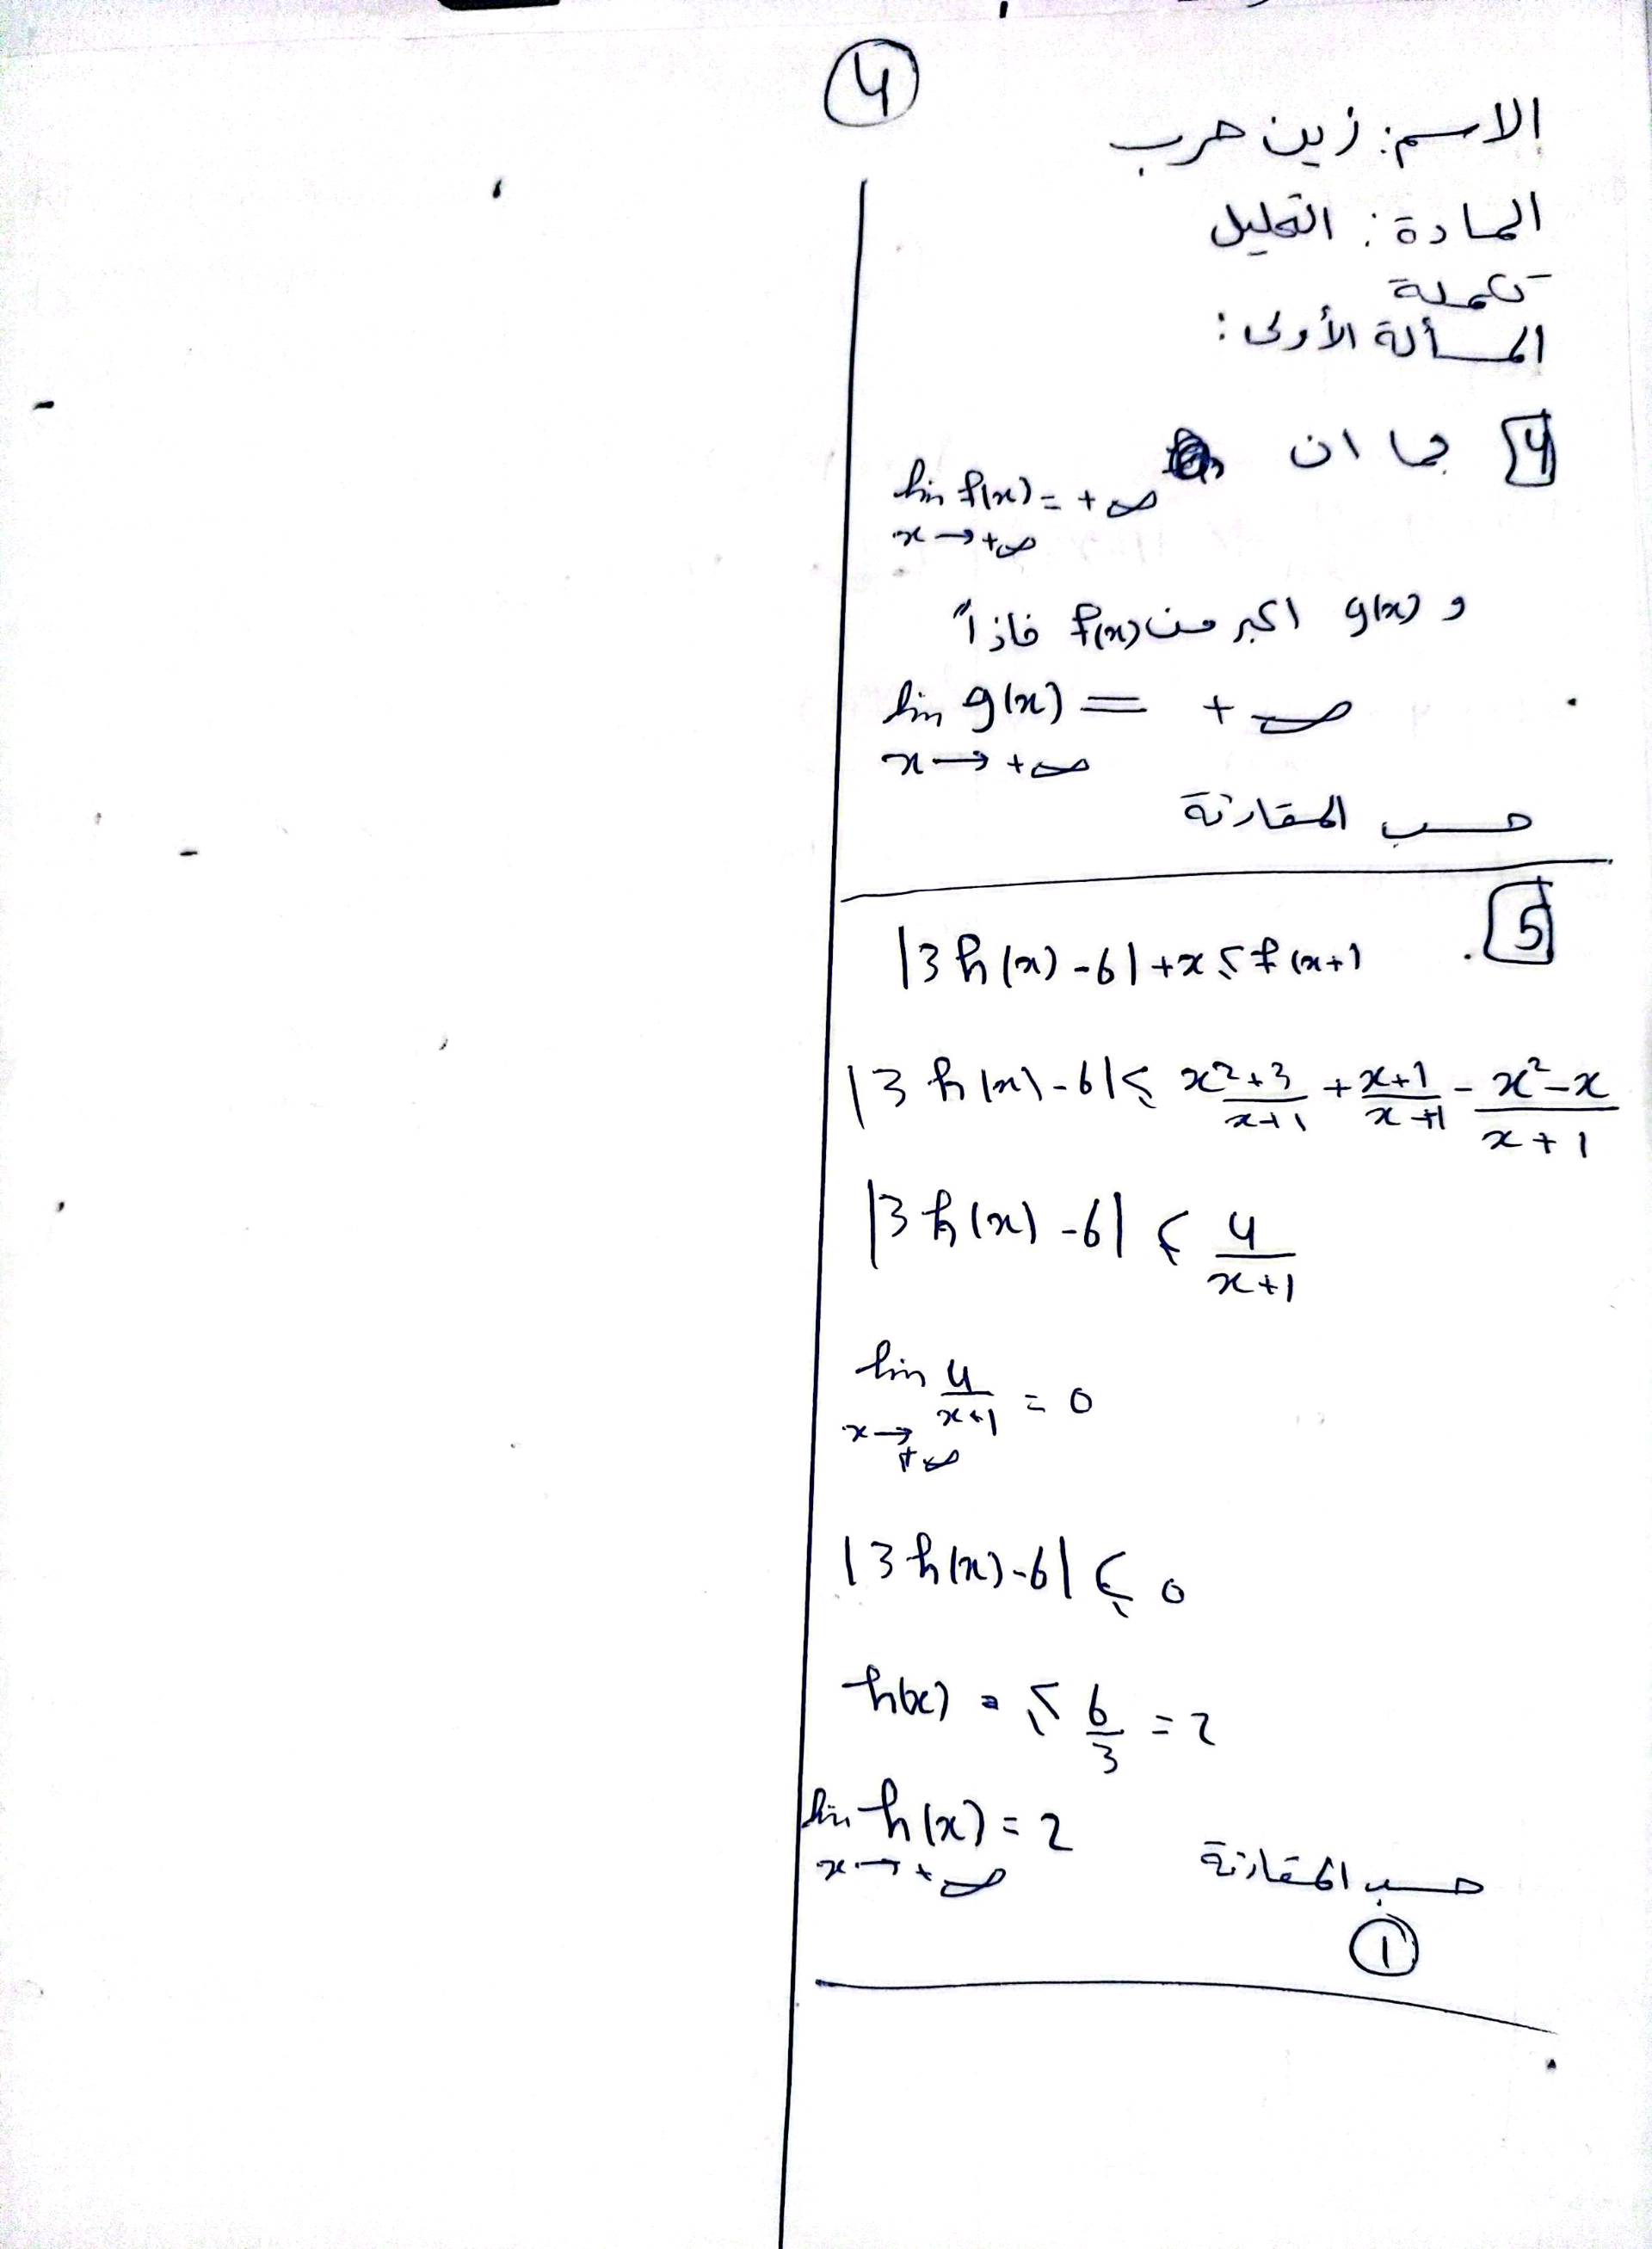 4
الاسم: زين حرب
المادة: التحليل
تكملة
المسألة الأولى:
4 بما ان
lim f(x) = +∞
x → +∞
و g(x) اكبر من f(x) فاذاً
lim g(x) = +∞
x → +∞
حسب المقارنة
5
|3h(x) - 6| + x ≤ f(x)+1
|3h(x) - 6| ≤ x²+3/x+1 + x+1/x+1 - x²-x/x+1
|3h(x) - 6| ≤ 4/x+1
lim 4/x+1 = 0
x → +∞
|3h(x) - 6| ≤ 0
h(x) = ≤ 6/3 = 2
lim h(x) = 2
x → +∞
حسب المقارنة
1